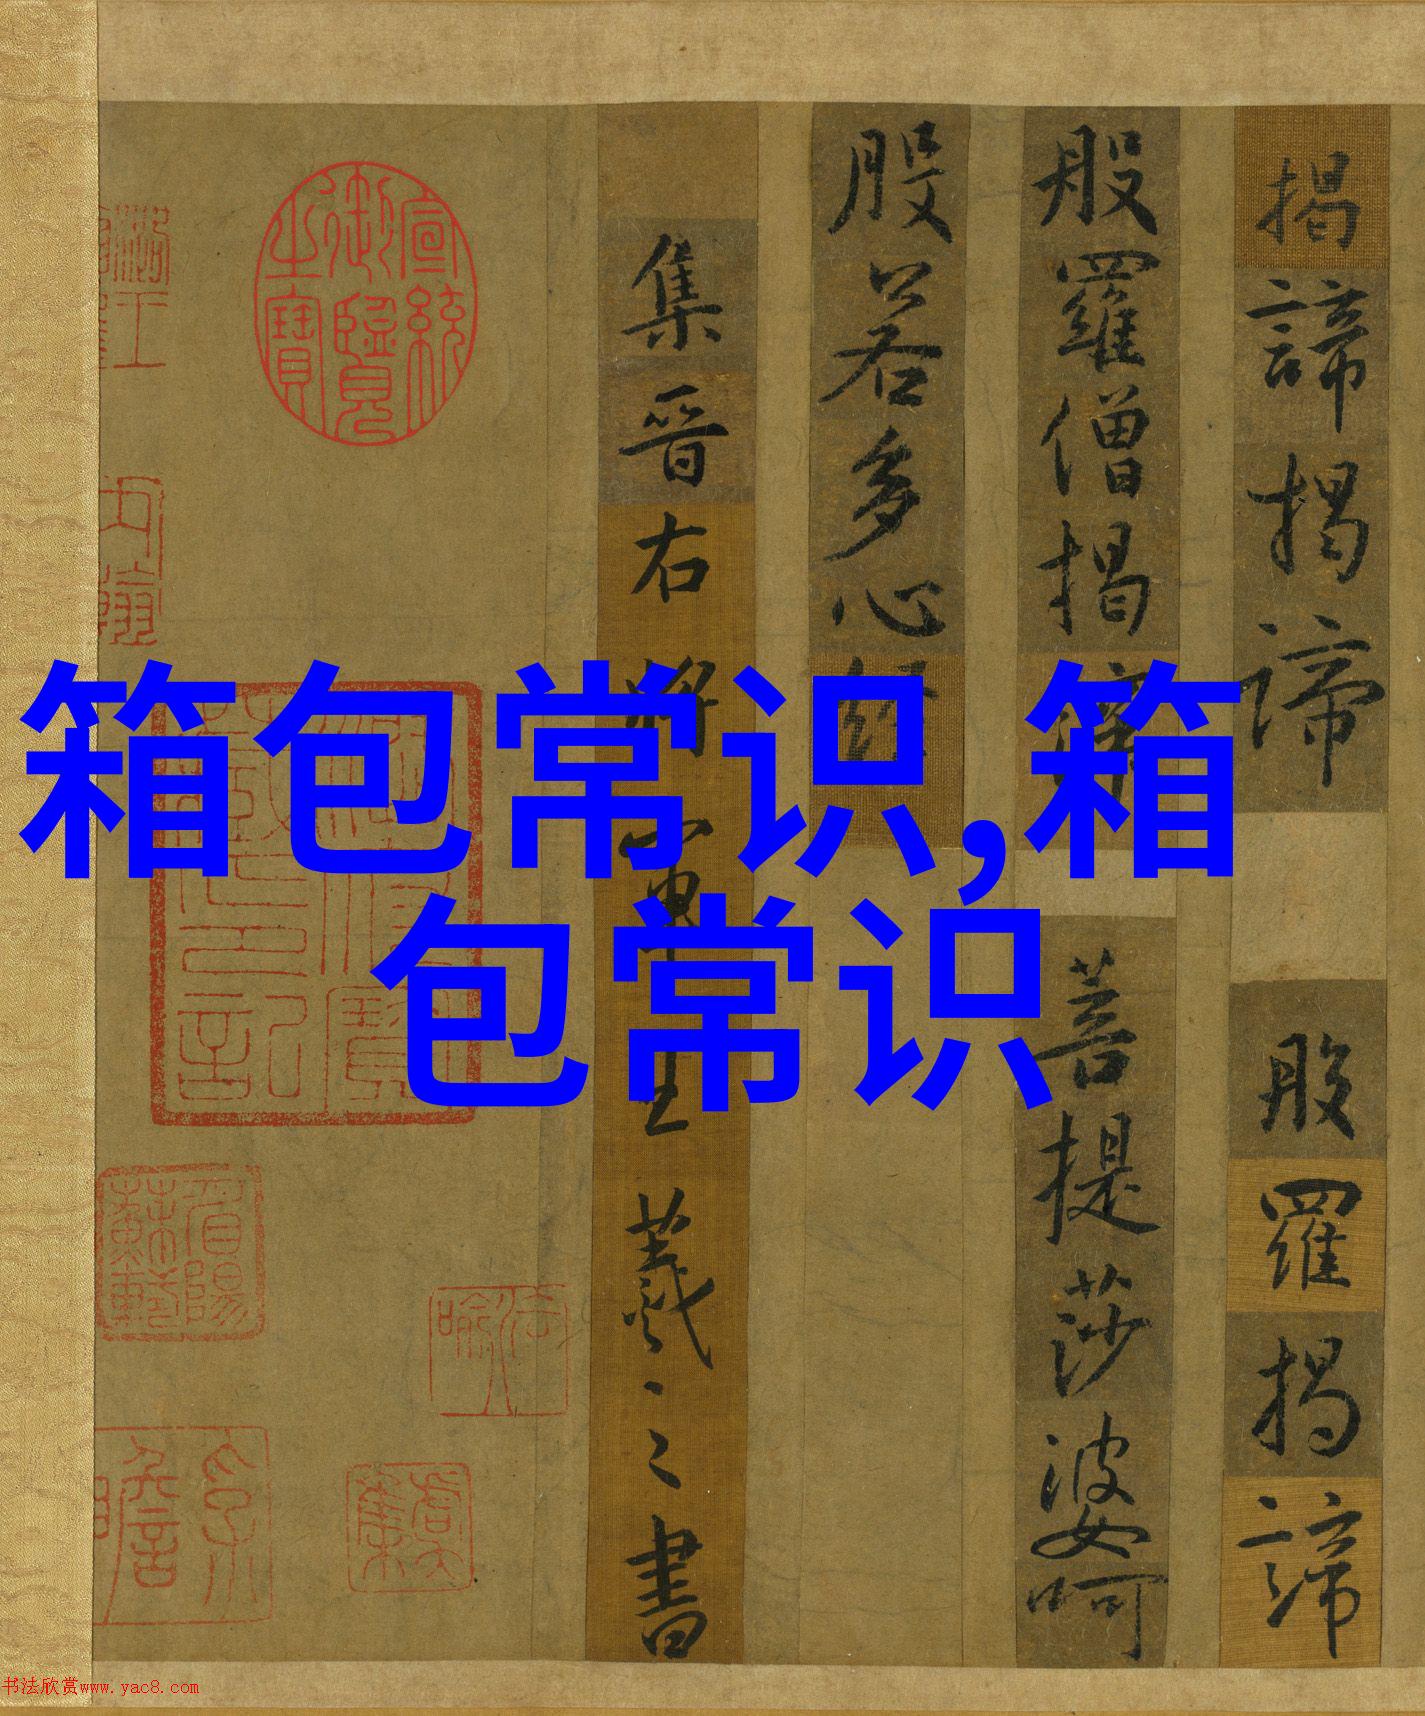 箱包常识,箱
包常识
揭諦揭諦 般羅揭諦
般羅僧揭諦 菩提莎婆呵
般若多心經
集晉右將軍王羲之書
宣統御覽之寶
书法欣赏www.yac8.com